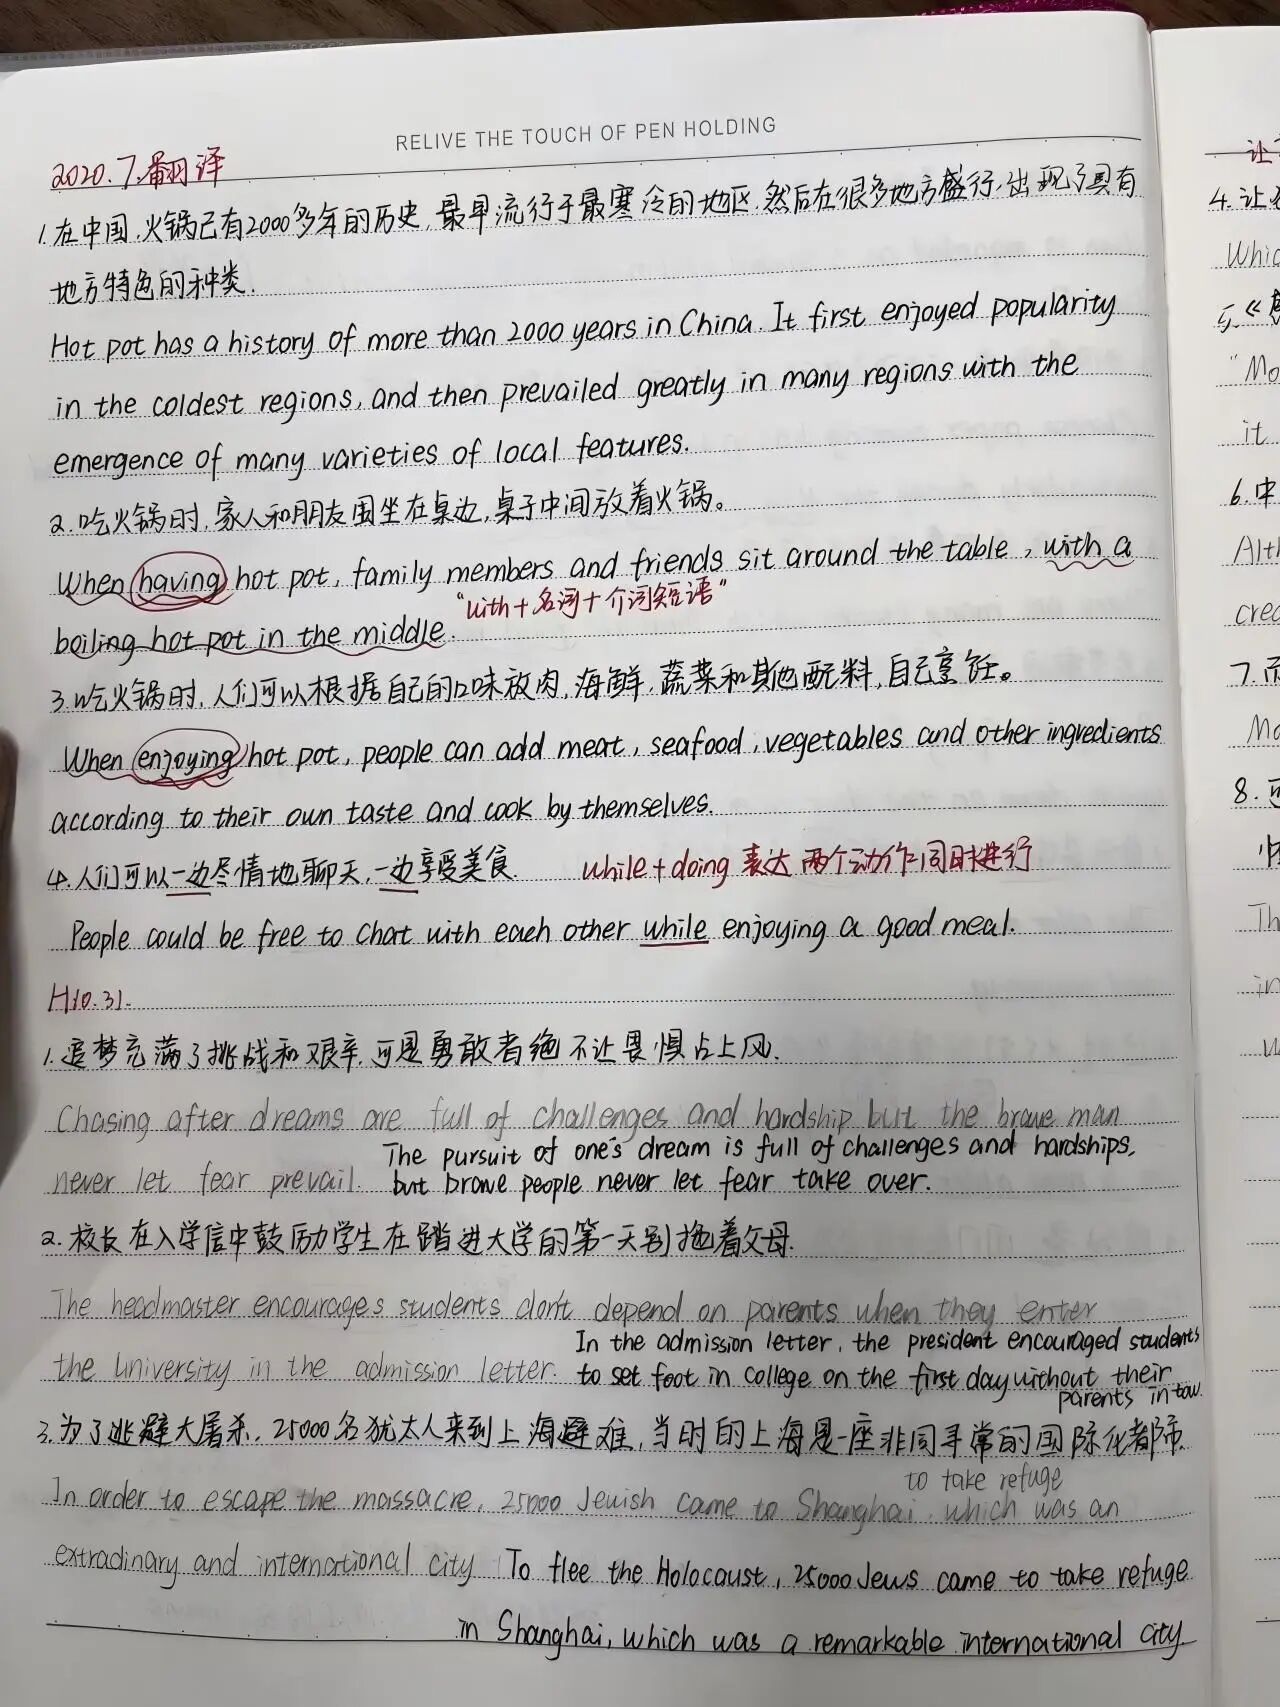 RELIVE THE TOUCH OF PEN HOLDING
2020.7.翻译
1.在中国,火锅已有2000多年的历史,最早流行于最寒冷的地区,然后在很多地方盛行,出现了具有
地方特色的种类.
Hot pot has a history of more than 2000 years in China. It first enjoyed popularity
in the coldest regions, and then prevailed greatly in many regions with the
emergence of many varieties of local features.
2.吃火锅时,家人和朋友围坐在桌边,桌子中间放着火锅。
When having hot pot, family members and friends sit around the table, with a
"with+名词+介词短语"
boiling hot pot in the middle.
3.吃火锅时,人们可以根据自己的口味放肉,海鲜,蔬菜和其他配料,自己烹饪。
When enjoying hot pot, people can add meat, seafood, vegetables and other ingredients
according to their own taste and cook by themselves.
4.人们可以一边尽情地聊天,一边享受美食. while+doing 表达两个动作同时进行
People could be free to chat with each other while enjoying a good meal.
10.31.
1.追梦充满了挑战和艰辛,可是勇敢者绝不让畏惧占上风.
Chasing after dreams are full of challenges and hardship but the brave man
never let fear prevail. The pursuit of one's dream is full of challenges and hardships,
but brave people never let fear take over.
2.校长在入学信中鼓励学生在踏进大学的第一天别拖着父母.
The headmaster encourages students don't depend on parents when they enter
the university in the admission letter. In the admission letter, the president encouraged students
to set foot in college on the first day without their
parents in tow.
3.为了逃避大屠杀,25000名犹太人来到上海避难,当时的上海是一座非同寻常的国际化都市.
to take refuge
In order to escape the massacre, 25000 Jewish came to Shanghai, which was an
extradinary and international city To flee the Holocaust, 25000 Jews came to take refuge
in Shanghai, which was a remarkable international city.
让
4.让
Which
5.《
"Mo
it
6.中
Alth
crea
7.而
Mo
8.可
Th
in